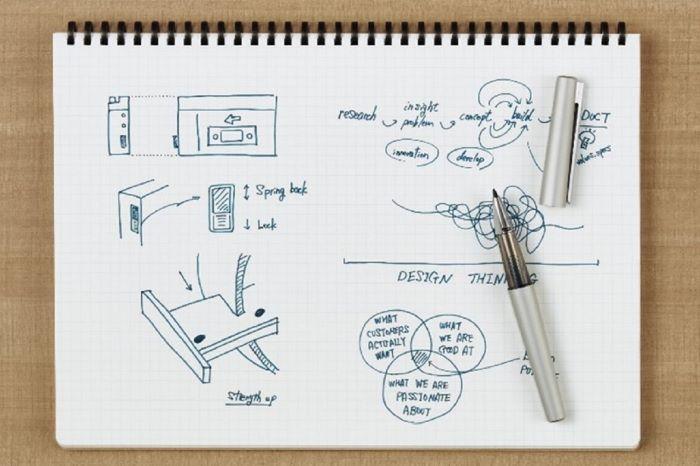 Spring back
Lock
Strength up
research
insight
problem
concept
build
DUCT
innovation
develop
DESIGN THIN
G
WHAT
CUSTOMERS
ACTUALLY
WANT
WHAT
WE ARE
GOOD AT
WHAT WE ARE
PASSIONATE
ABOUT